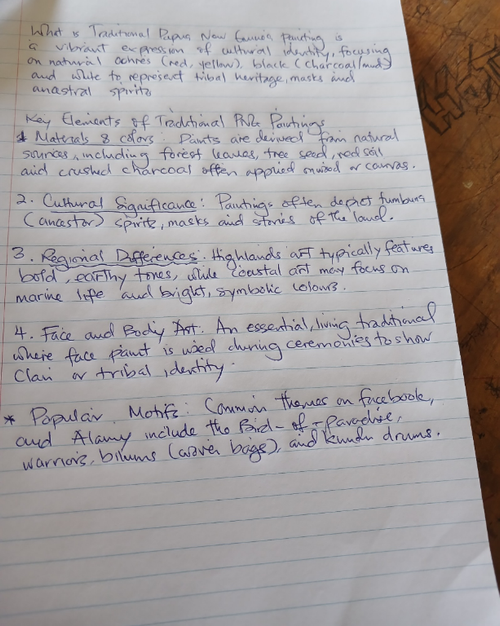 What is Traditional Papua New Guinea Painting is
a vibrant expression of cultural identity, focusing
on natural ochres (red, yellow), black (charcoal/mud)
and white to represent tribal heritage, masks and
anastral spirits
Key Elements of Traditional PNG Paintings
1 Materials & colors: Paints are derived from natural
sources, including forest leaves, tree seed, red soil
and crushed charcoal often applied on wood or canvas.
2. Cultural Significance: Paintings often depict tumbuna
(ancestor) spirits, masks and stories of the land.
3. Regional Differences: Highlands art typically features
bold, earthy tones, while coastal art may focus on
marine life and bright, symbolic colours.
4. Face and Body Art: An essential, living traditional
where face paint is used during ceremonies to show
Clan or tribal identity.
* Popular Motifs: Common themes on facebook,
and Alamy include the Bird-of-paradise,
warriors, bilums (woven bags), and kundu drums.